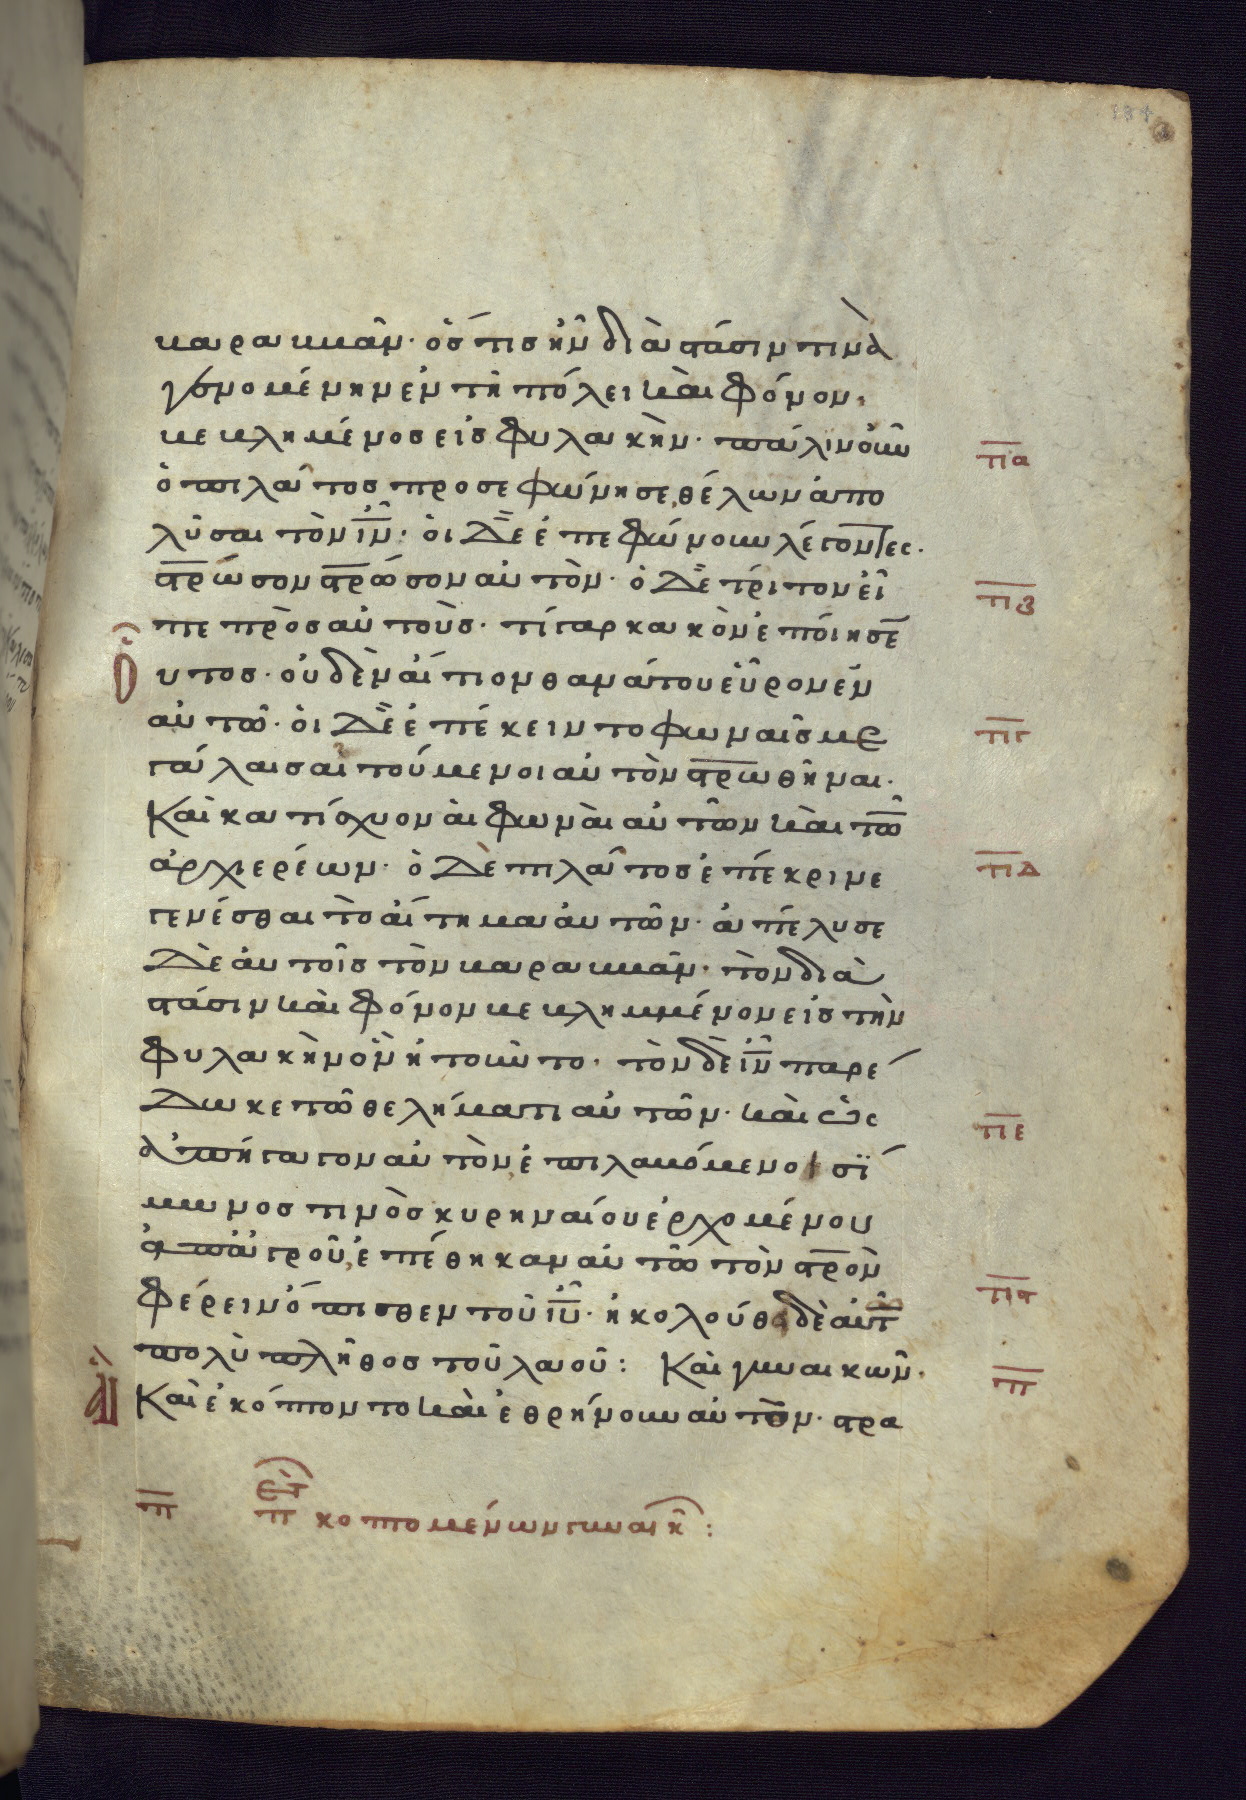 βαραββᾶν· ὅστις ἦν διὰ στάσιν τινὰ
γενομένην ἐν τῇ πόλει καὶ φόνον,
βεβλημένος εἰς φυλακήν· πάλιν οὖν
ὁ πιλάτος προσεφώνησε, θέλων ἀπο
λῦσαι τὸν ιν· οἱ δὲ ἐπεφώνουν λέγοντες·
στρωσον στρωσον αὐτόν· ὁ δὲ τρίτον εἶ
πε πρὸς αὐτούς· τί γὰρ κακὸν ἐποίησεν
οὗτος· οὐδὲν αἴτιον θανάτου εὗρον ἐν
αὐτῷ· οἱ δὲ ἐπέκειντο φωναῖς με
γάλαις αἰτούμενοι αὐτὸν στρωθῆναι·
Καὶ κατίσχυον αἱ φωναὶ αὐτῶν καὶ τῶν
ἀρχιερέων· ὁ δὲ πιλάτος ἐπέκρινε
γενέσθαι τὸ αἴτημα αὐτῶν· ἀπέλυσε
δὲ αὐτοῖς τὸν βαραββᾶν· τὸν διὰ
στάσιν καὶ φόνον βεβλημμένον εἰς τὴν
φυλακὴν ὃν ἠτοῦντο· τὸν δὲ ιν παρέ
δωκε τῷ θελήματι αὐτῶν· καὶ ὡς
ἀπήγαγον αὐτὸν, ἐπιλαβόμενοι σί
μωνος τινὸς κυρηναίου ἐρχομένου
ἀπ ἀγροῦ, ἐπέθηκαν αὐτῷ τὸν στρον
φέρειν ὄπισθεν τοῦ ιυ· ἠκολούθει δὲ αὐτ
πολὺ πλῆθος τοῦ λαοῦ: Καὶ γυναικῶν·
Καὶ ἐκόπτοντο καὶ ἐθρήνουν αὐτόν· στρα
πα
πβ
πγ
πδ
πε
πϛ
π
π κοπτομένων γυναικ: